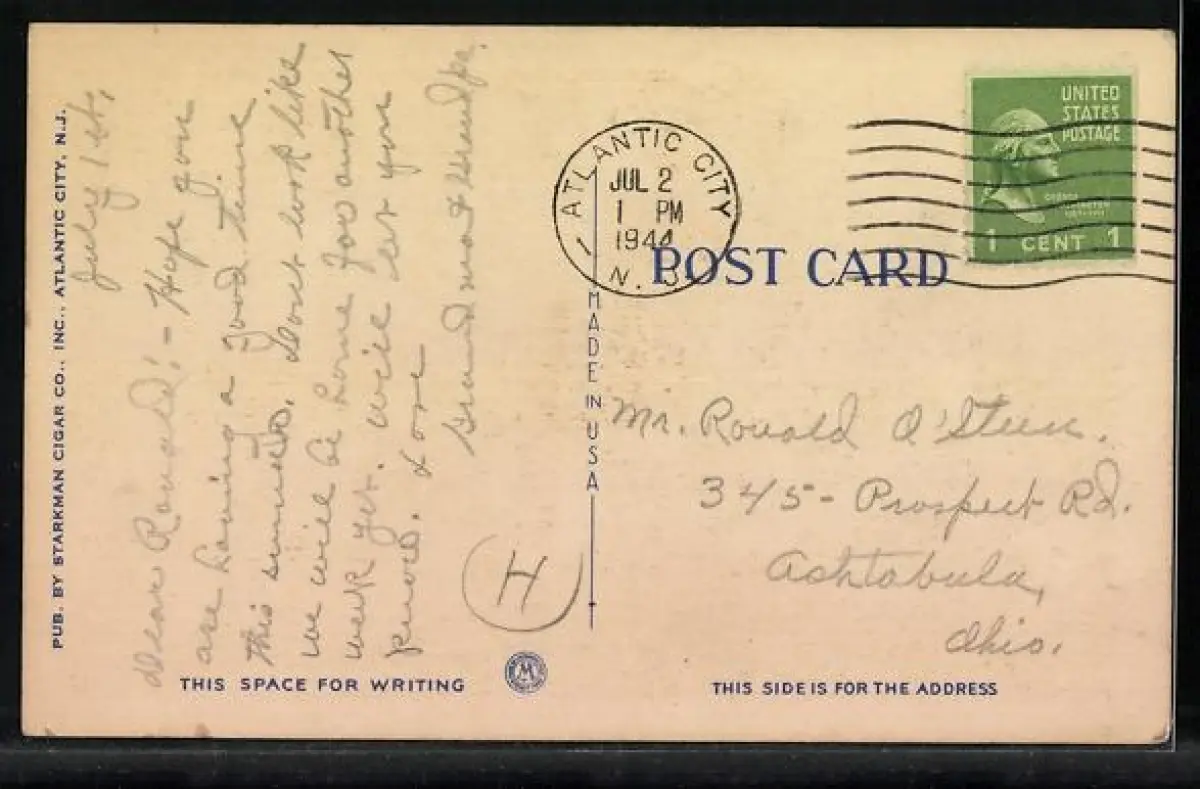 PUB. BY STARKMAN CIGAR CO., INC., ATLANTIC CITY, N.J.
July 1st,
Dear Ronald: - Hope you
are having a good time
this summer. Dont look like
we will be home for another
week yet. will let you
know. Love
Grandma & Grandpa.
H
THIS SPACE FOR WRITING
M
ATLANTIC CITY
JUL 2
1 PM
1944
N.J.
MADE IN USA
POST CARD
UNITED
STATES
POSTAGE
1 CENT 1
Mr. Ronald O'Steen.
345 - Prospect Rd.
Ashtabula,
Ohio.
THIS SIDE IS FOR THE ADDRESS